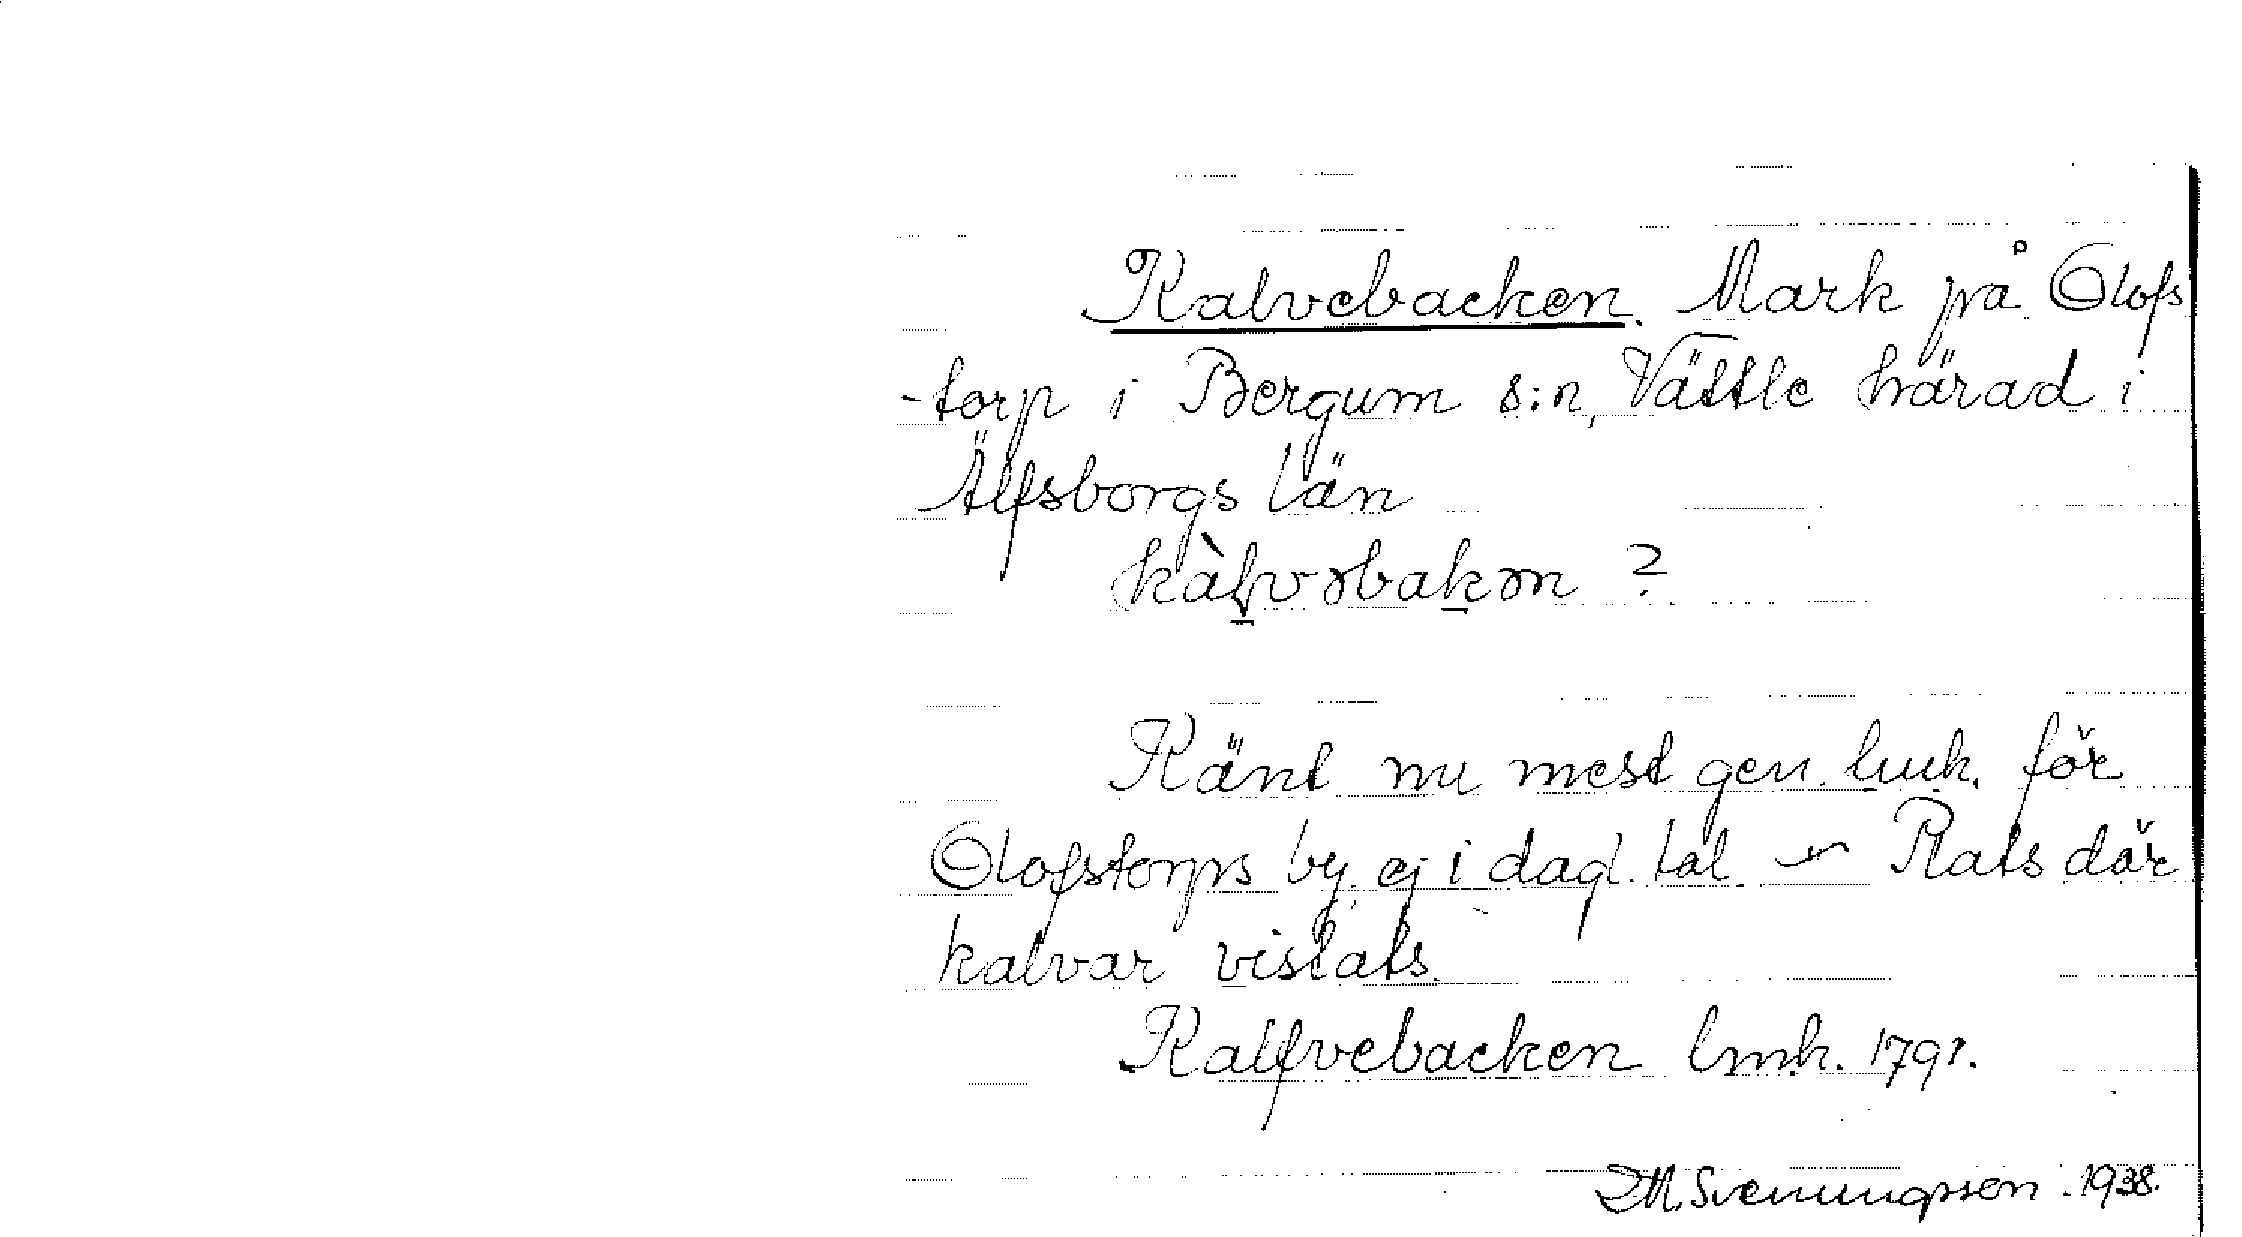 Kalvebacken. Mark på Olofs
-torp i Bergum s:n, Vättle härad i
Älfsborgs län
kàlvəbakən ?
Känt nu mest gen. lmk. för
Olofstorps by, ej i dagl. tal. ~ Plats där
kalvar vistats.
Kalfvebacken lmk. 1791.
D.M. Svenungsson. 1938.